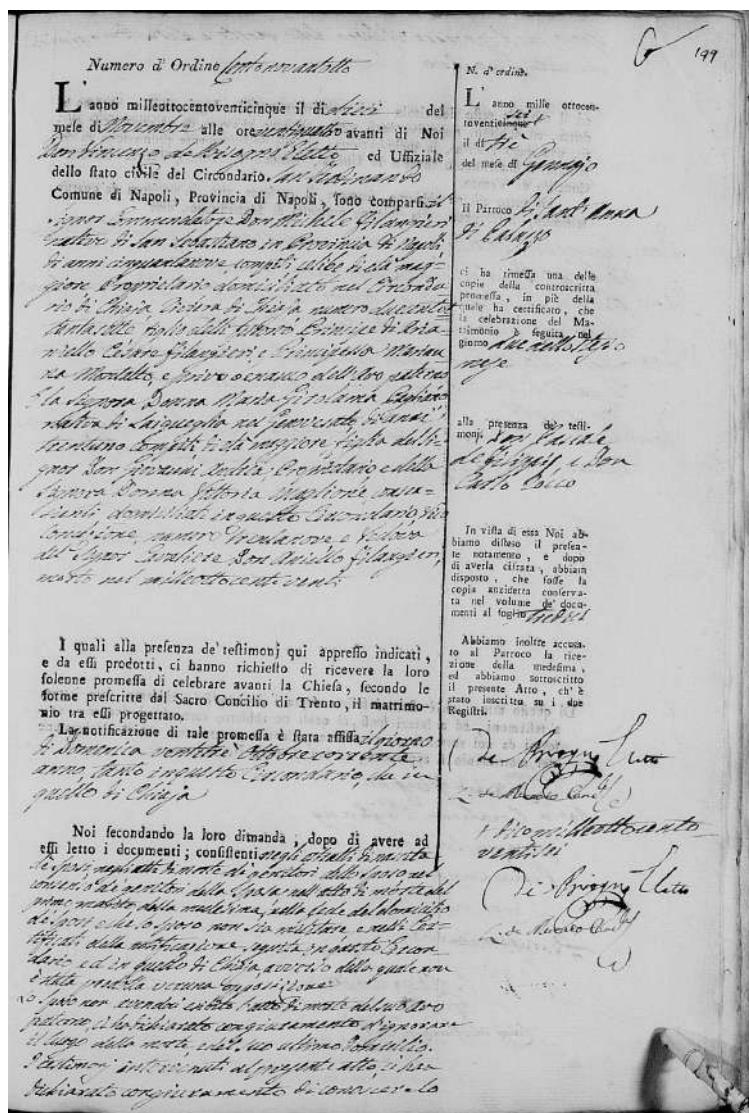 Numero d' Ordine Centonovantotto
L' anno milleottocentoventicinque il dì dieci del
mese di Novembre alle ore ventiquattro avanti di Noi
Don Vincenzo de Bisogno Eletto ed Uffiziale
dello stato civile del Circondario San Ferdinando
Comune di Napoli, Provincia di Napoli, sono comparsi il
Signor Commendatore Don Michele Filangieri
nativo di San Sebastiano in Provincia di Napoli
di anni cinquantanove compiti celibe di età mag-
giore Proprietario domiciliato nel Circonda-
rio di Chiaja Riviera di Chiaja numero duecento
figlio delli furono Principe di Aria-
niello Cesare Filangieri, e Principessa Marian-
na Montalto, e privo ancora dell' Avo paterno
E la Signora Donna Maria Girolama
nativa di Laigueglia nel Genovesato di anni
trentuno compiti di età maggiore figlia del Si-
gnor Don Giovanni Proprietario e della
Signora Donna Vittoria Maglione consen-
zienti domiciliati in questo Circondario Vico
Concezione numero trentanove e Vedova
del Signor Cavaliere Don Aniello Filangieri,
morto nel milleottocento venti.
I quali alla presenza de' testimonj qui appresso indicati,
e da essi prodotti, ci hanno richiesto di ricevere la loro
solenne promessa di celebrare avanti la Chiesa, secondo le
forme prescritte dal Sacro Concilio di Trento, il matrimo-
nio tra essi progettato.
La notificazione di tale promessa è stata affissa il giorno
di Domenica ventitrè Ottobre corrente
anno, tanto in questo Circondario, che in
quello di Chiaja
Noi secondando la loro dimanda, dopo di avere ad
essi letto i documenti; consistenti negli attestati di nascita
de' sposi, negli atti di morte de' genitori dello sposo nel
consenso de' genitori della sposa nell' atto di morte del
primo marito della medesima, nella fede del domicilio
de' sposi e che lo sposo non sia militare, e nelli Cer-
tificati della notificazione seguita in questo Circon-
dario ed in quello di Chiaja, avverso della quale non
è stata prodotta veruna opposizione
Lo sposo non avendo esibito l' atto di morte del suo Avo
paterno, ci ha dichiarato con giuramento d' ignorare
il luogo della morte, e del suo ultimo domicilio.
I testimonj intervenuti al presente atto, ci han
dichiarato con giuramento di conoscere lo
199
N. d' ordine.
L' anno mille ottocen-
toventicinque sei
il dì tre
del mese di Gennajo
il Parroco di Sant' Anna
di Palazzo
ci ha rimessa una delle
copie della controscritta
promessa, in piè della
quale ha certificato, che
la celebrazione del Ma-
trimonio è seguita nel
giorno due dello stesso
mese
alla presenza de' testi-
monj Don Pascale
de Filippis e Don
Carlo Rocco
In vista di essa Noi ab-
biamo disteso il presen-
te notamento, e dopo
di averla cifrata, abbiam
disposto, che fosse la
copia anzidetta conserva-
ta nel volume de' docu-
menti al foglio tredici
Abbiamo inoltre accusa-
to al Parroco la rice-
zione della medesima,
ed abbiamo sottoscritto
il presente Atto, ch' è
stato inscritto su i due
Registri.
De Bisogno Eletto
Dico milleottocento
ventisei
De Bisogno Eletto